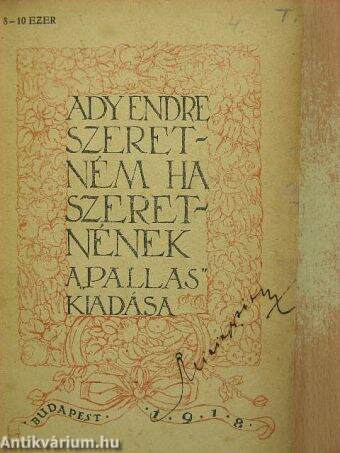 8–10 EZER
4 T.
ADY ENDRE
SZERET-
NÉM HA
SZERET-
NÉNEK
A „PALLAS”
KIADÁSA
BUDAPEST · 1·9·1·8·
Antikvárium.hu
antikvarium.hu